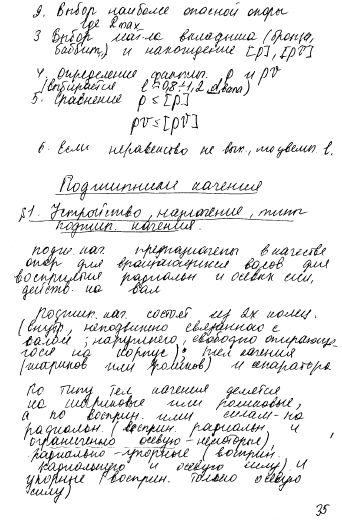 2. Выбор наиболее опасной опоры
где Rmax.
3 Выбор матла вкладыша (бронза,
баббит,) и нахождение [p], [pV]
4. Определение фактич. p и pV
(выбирается l = 0,8÷1,2 dвала)
5. Сравнение p ≤ [p]
pV ≤ [pV]
6. Если неравенство не вып., то увелич. l.
Подшипники качения
§1. Устройство, назначение, типы
подшип. качения.
подш. кач. предназначены в качестве
опор для вращающихся валов для
восприятия радиальн и осевых сил,
действ. на вал
Подшип. кач. состоит из 2х колец.
(внутр., неподвижно связанного с
валом; наружнего, свободно опирающе-
гося на корпус); тел качения
(шариков или роликов) и сепаратора
По типу тел качения делятся
на шариковые или роликовые,
а по восприн. ими силам - на
радиальн. (восприн. радиальн и
ограниченно осевую - некоторые),
радиально-упорные (восприн.
радиальную и осевую силу) и
упорные (восприн. только осевую
силу)
35